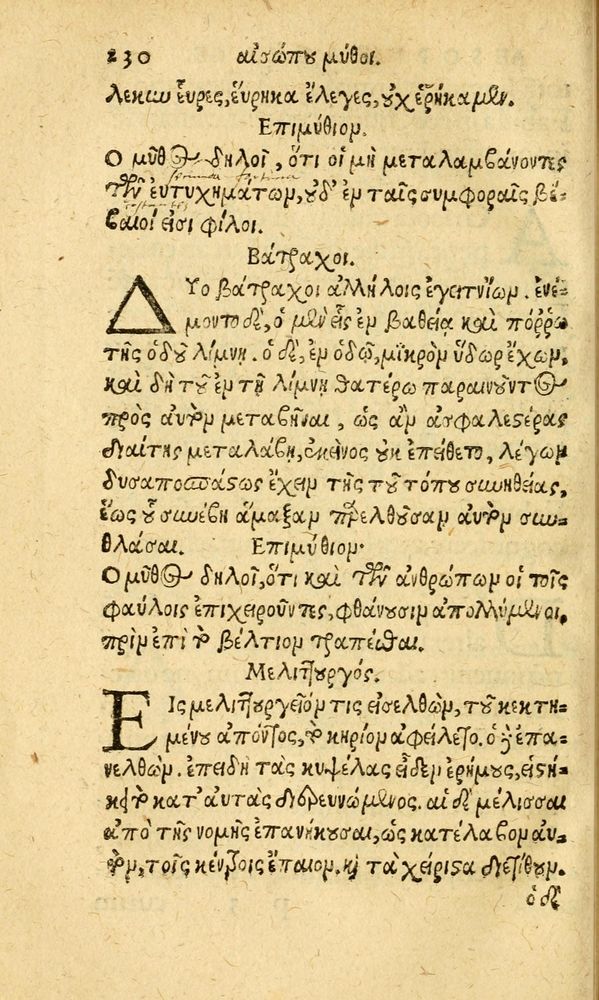 230 αἰσώπου μῦθοι.
λεκων εὗρες, εὕρηκα ἔλεγες, οὐχ εὑρήκαμεν.
Ἐπιμύθιον.
Ο μῦθος δηλοῖ, ὅτι οἱ μὴ μεταλαμβάνοντες
τῶν εὐτυχημάτων, οὐδ' ἐν ταῖς συμφοραῖς βέ-
βαιοί εἰσι φίλοι.
Βάτραχοι.
ΔΥο βάτραχοι ἀλλήλοις ἐγειτνίων. ἐνέ-
μοντο δὲ, ὁ μὲν εἷς ἐν βαθείᾳ καὶ πόῤῥω
τῆς ὁδοῦ λίμνῃ. ὁ δὲ, ἐν ὁδῷ, μικρὸν ὕδωρ ἔχων,
καὶ δὴ τοῦ ἐν τῇ λίμνῃ θατέρω παραινοῦντος
πρὸς αὐτὸν μεταβῆναι, ὡς ἂν ἀσφαλεστέρας
διαίτης μεταλάβῃ, ἐκεῖνος οὐκ ἐπείθετο, λέγων
δυσαποσπάστως ἔχειν τῆς τοῦ τόπου συνηθείας,
ἕως οὗ συνέβη ἅμαξαν παρελθοῦσαν αὐτὸν συν-
θλάσαι. Ἐπιμύθιον.
Ο μῦθος δηλοῖ, ὅτι καὶ τῶν ἀνθρώπων οἱ τοῖς
φαύλοις ἐπιχειροῦντες, φθάνουσιν ἀπολλύμενοι,
πρὶν ἐπὶ τὸ βέλτιον τραπέσθαι.
Μελιττουργός.
ΕΙς μελιττουργεῖόν τις εἰσελθὼν, τοῦ κεκτη-
μένου ἀπόντος, τὸ κηρίον ἀφείλετο. ὁ δὲ ἐπα-
νελθὼν. ἐπειδὴ τὰς κυψέλας εἶδεν ἐρήμους, εἱστή-
κει τὸ κατ' αὐτὰς διερευνώμενος. αἱ δὲ μέλισσαι
ἀπὸ τῆς νομῆς ἐπανήκουσαι, ὡς κατέλαβον αὐ-
τὸν, τοῖς κέντροις ἔπαιον. καὶ τὰ χείριστα διετίθουν.
ὁ δὲ